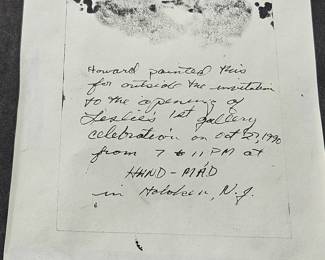 Howard painted this
for outside the invitation
to the opening of
Leslie's 1st gallery
celebration on Oct 27, 1990
from 7 to 11 PM at
HAND-MAD
in Hoboken, N.J.